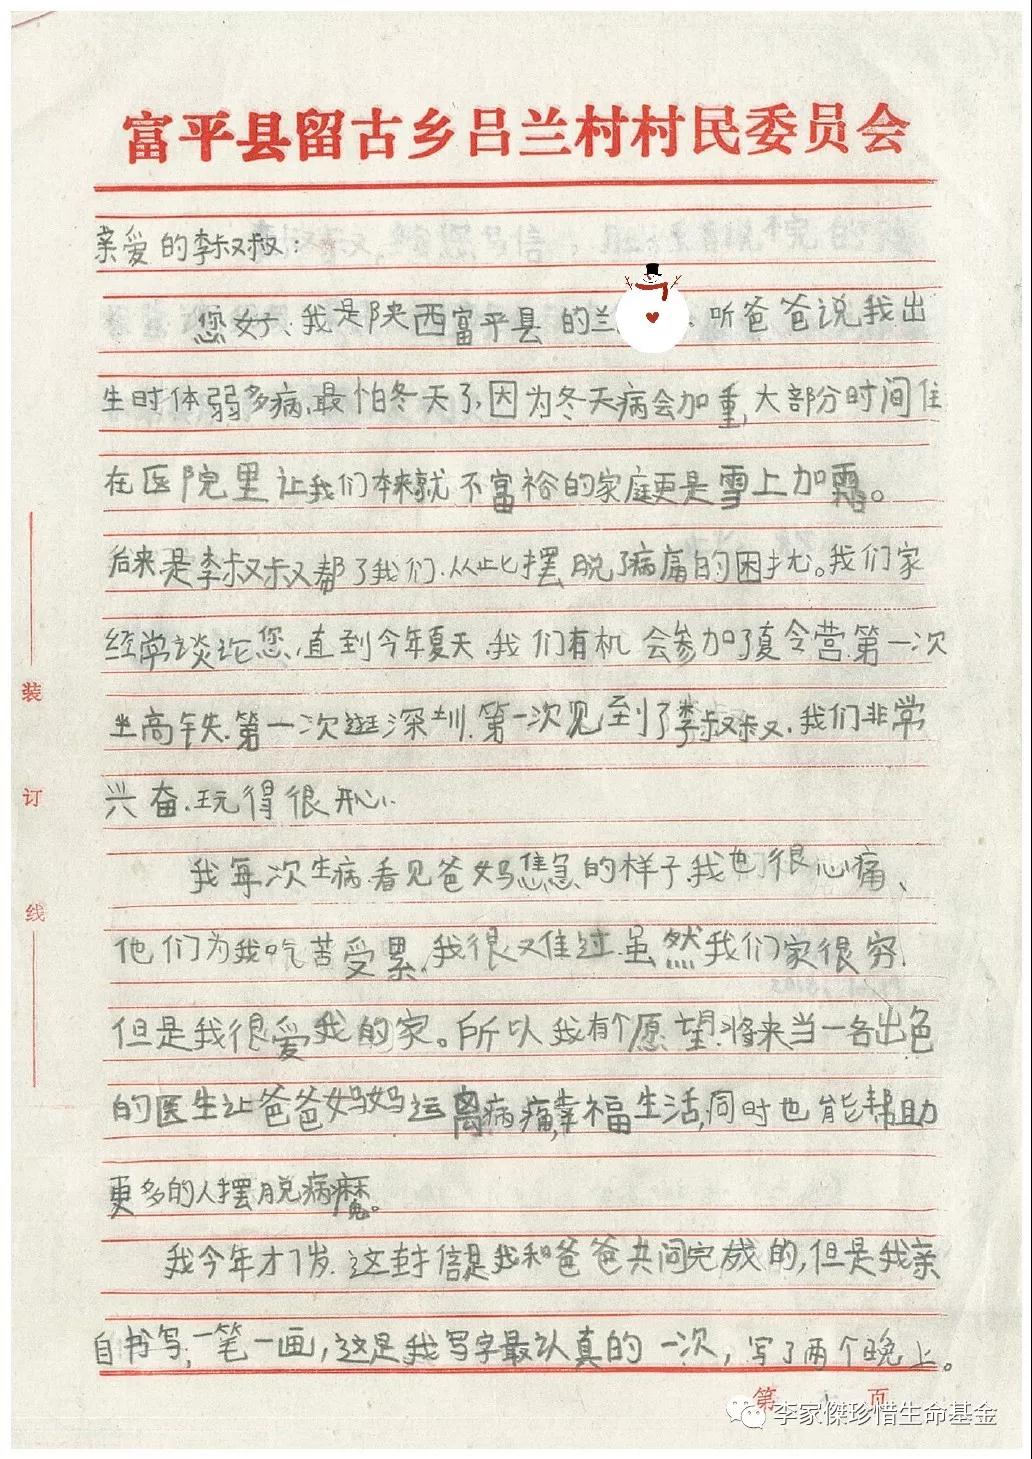 富平县留古乡吕兰村村民委员会
亲爱的李叔叔:
您好、我是陕西富平县的兰、听爸爸说我出
生时体弱多病、最怕冬天了、因为冬天病会加重,大部分时间住
在医院里让我们本来就不富裕的家庭更是雪上加霜。
后来是李叔叔帮了我们、从此摆脱了病痛的困扰。我们家
经常谈论您、直到今年夏天、我们有机会参加了夏令营、第一次
坐高铁、第一次逛深圳、第一次见到了李叔叔、我们非常
兴奋、玩得很开心、
我每次生病看见爸妈焦急的样子、我也很心痛、
他们为我吃苦受累、我很难过、虽然我们家很穷、
但是我很爱我的家。所以我有个愿望、将来当一名出色
的医生让爸爸妈妈远离病痛,幸福生活,同时也能帮助
更多的人摆脱病魔。
我今年才7岁、这封信是我和爸爸共同完成的,但是我亲
自书写,一笔一画,这是我写字最认真的一次,写了两个晚上。
装
订
线
第 1 页
李家傑珍惜生命基金